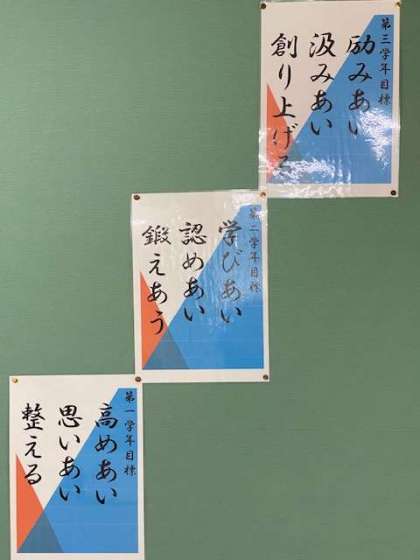 第三学年目標
励みあい
汲みあい
創り上げる
第二学年目標
学びあい
認めあい
鍛えあう
第一学年目標
高めあい
思いあい
整える